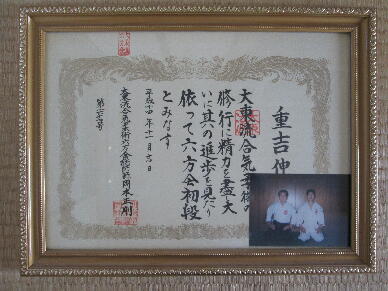 重吉伸
大東流合気柔術の
修行に精力を盡し大
いに其の進歩を見たり
依って六方会初段
とみなす
平成十四年十一月吉日
大東流合気柔術六方会総師範岡本正剛